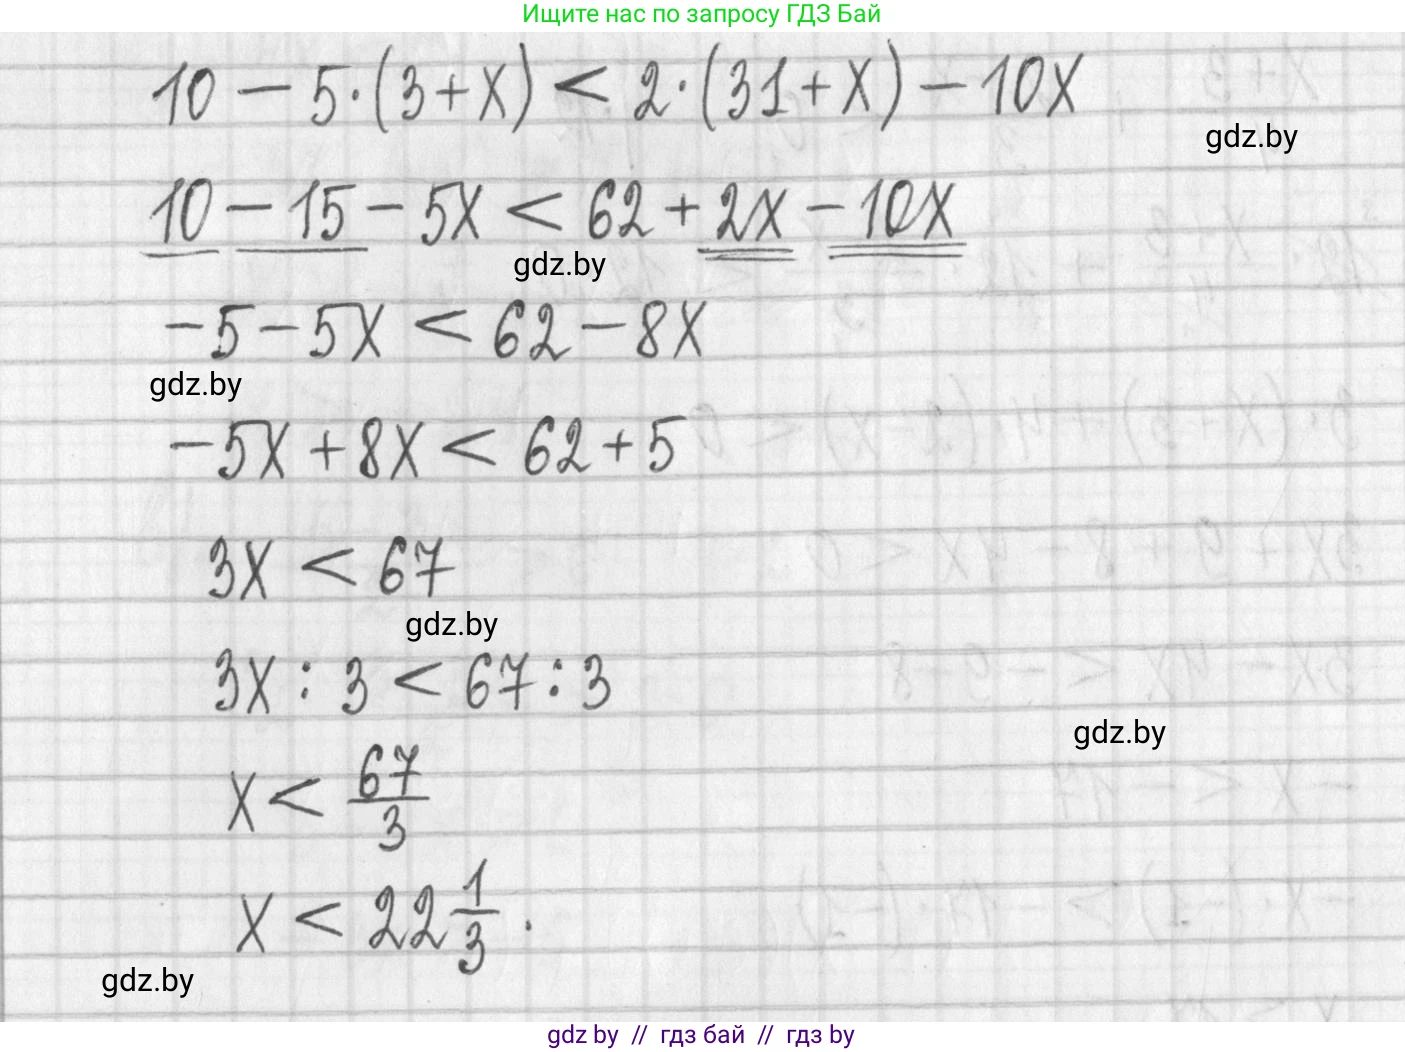 Ищите нас по запросу ГДЗ Бай
10 - 5·(3+x) < 2·(31+x) - 10x
gdz.by
10 - 15 - 5x < 62 + 2x - 10x
gdz.by
-5 - 5x < 62 - 8x
gdz.by
-5x + 8x < 62 + 5
3x < 67
gdz.by
3x : 3 < 67 : 3
gdz.by
x < 67/3
x < 22 1/3 .
gdz.by
gdz by // гдз бай // гдз by